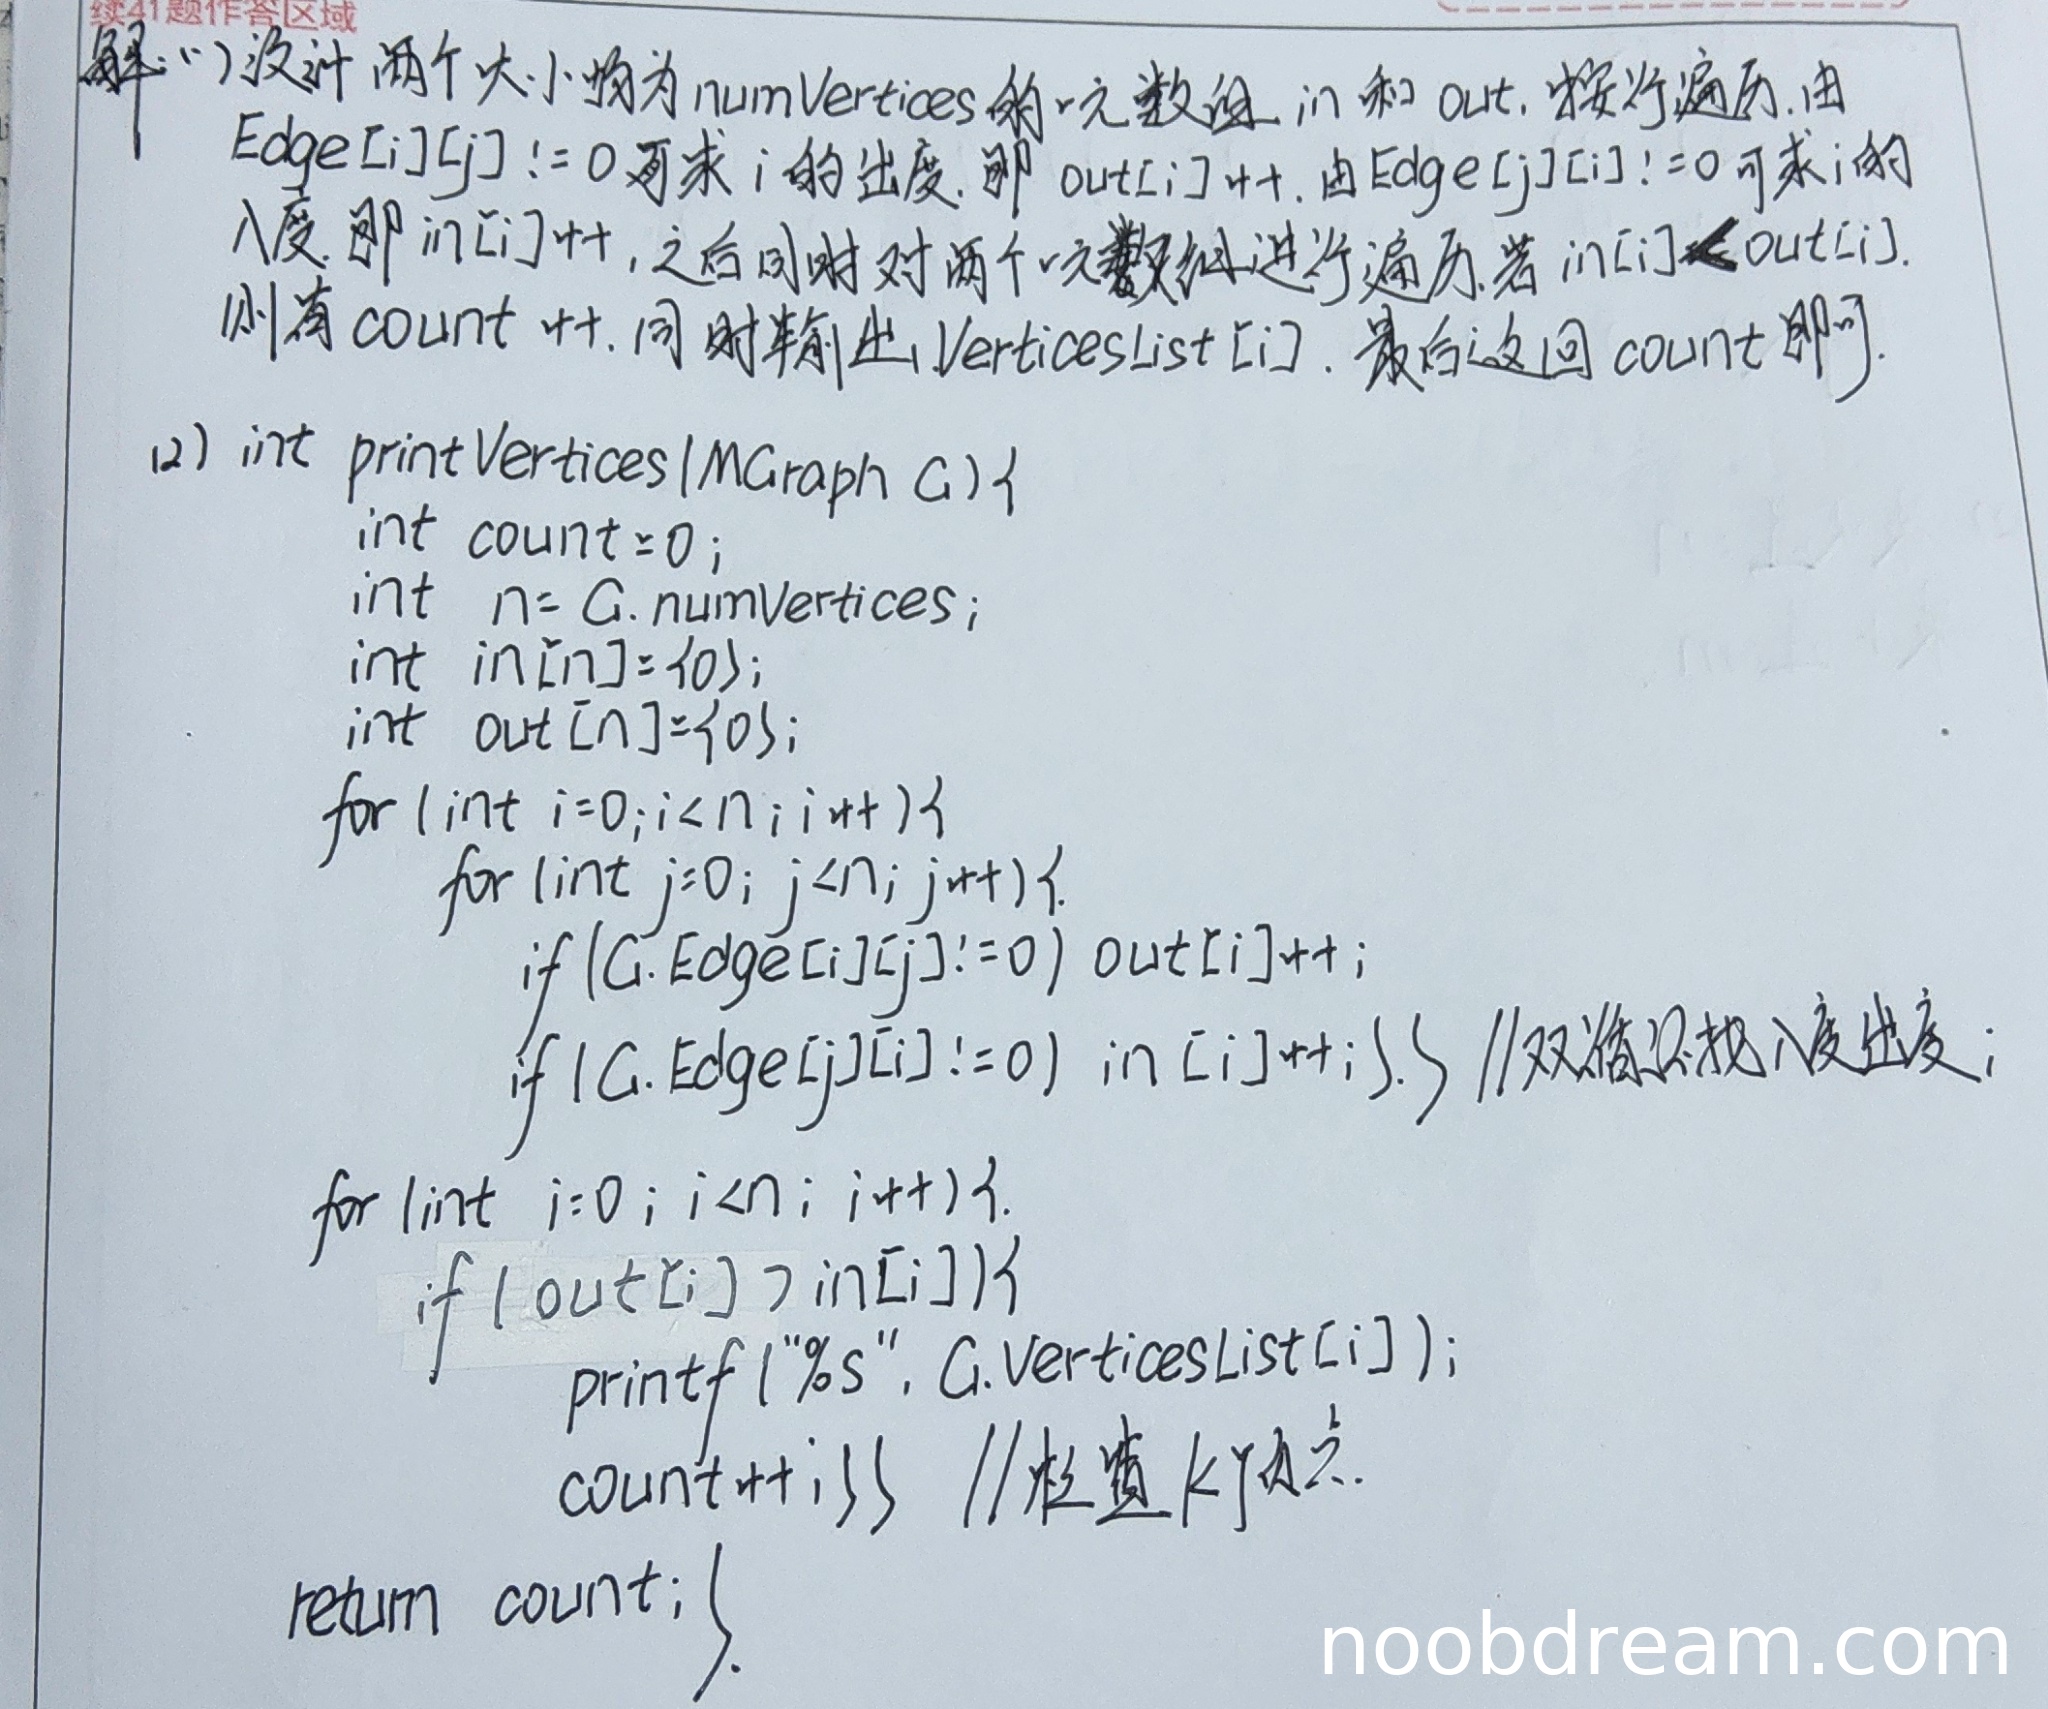 续41题作答区域
解:(1)设计两个大小均为numVertices的一元数组in和out.按行遍历.由
Edge[i][j]!=0可求i的出度.即out[i]++.由Edge[j][i]!=0可求i的
入度.即in[i]++,之后同时对两个一元数组进行遍历.若in[i]<out[i].
则有count++.同时输出VerticesList[i].最后返回count即可.
(2) int printVertices(MGraph G){
int count=0;
int n=G.numVertices;
int in[n]={0};
int out[n]={0};
for(int i=0;i<n;i++){
for(int j=0;j<n;j++){
if(G.Edge[i][j]!=0) out[i]++;
if(G.Edge[j][i]!=0) in[i]++;}} //双循环找入度出度;
for(int i=0;i<n;i++){
if(out[i]>in[i]){
printf("%s",G.VerticesList[i]);
count++;}} //检查K顶点.
return count;}
noobdream.com